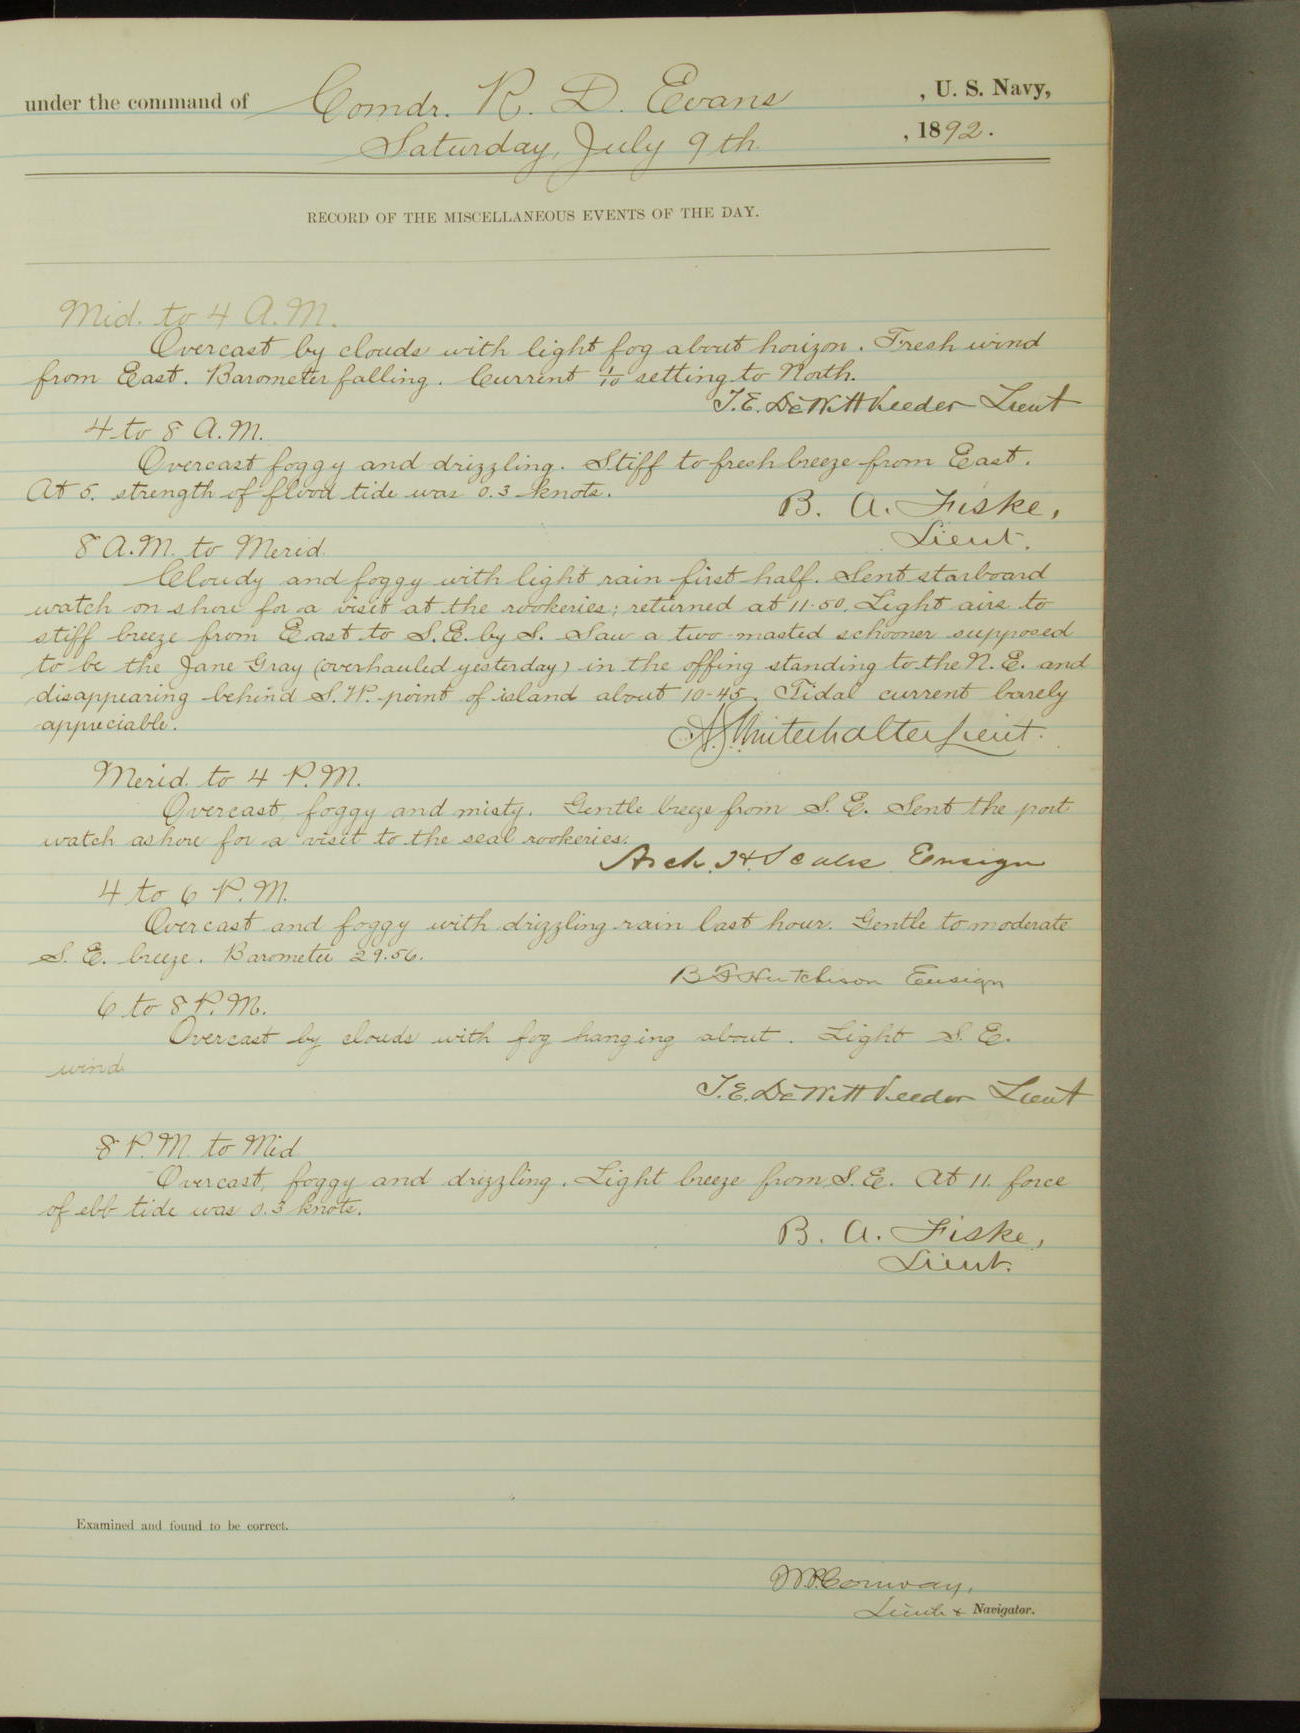 under the command of Comdr. R. D. Evans, U. S. Navy,
Saturday, July 9th, 1892.
RECORD OF THE MISCELLANEOUS EVENTS OF THE DAY.
Mid. to 4 A.M.
Overcast by clouds with light fog about horizon. Fresh wind
from East. Barometer falling. Current 1/10 setting to North.
T.E. DeWitt Veeder Lieut
4 to 8 A.M.
Overcast foggy and drizzling. Stiff to fresh breeze from East.
At 5. strength of flood tide was 0.3 knots.
B. A. Fiske,
Lieut.
8 A.M. to Merid.
Cloudy and foggy with light rain first half. Sent starboard
watch on shore for a visit at the rookeries; returned at 11-50. Light airs to
stiff breeze from East to S.E. by S. Saw a two-masted schooner supposed
to be the Jane Gray (overhauled yesterday) in the offing standing to the N.E. and
disappearing behind S.W. point of island about 10-45. Tidal current barely
appreciable.
A.G. Winterhalter Lieut.
Merid. to 4 P.M.
Overcast, foggy and misty. Gentle breeze from S.E. Sent the port
watch ashore for a visit to the seal rookeries.
Arch. H. Scales Ensign
4 to 6 P.M.
Overcast and foggy with drizzling rain last hour. Gentle to moderate
S.E. breeze. Barometer 29.56.
B F Hutchison Ensign
6 to 8 P.M.
Overcast by clouds with fog hanging about. Light S.E.
wind
T.E. DeWitt Veeder Lieut
8 P.M. to Mid
Overcast, foggy and drizzling. Light breeze from S.E. At 11. force
of ebb tide was 0.3 knots.
B. A. Fiske,
Lieut.
Examined and found to be correct.
W.P. Conway,
Lieut. & Navigator.